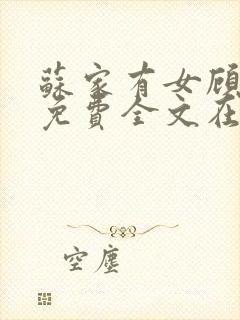 蘇家有女顾
免費全文在
空塵